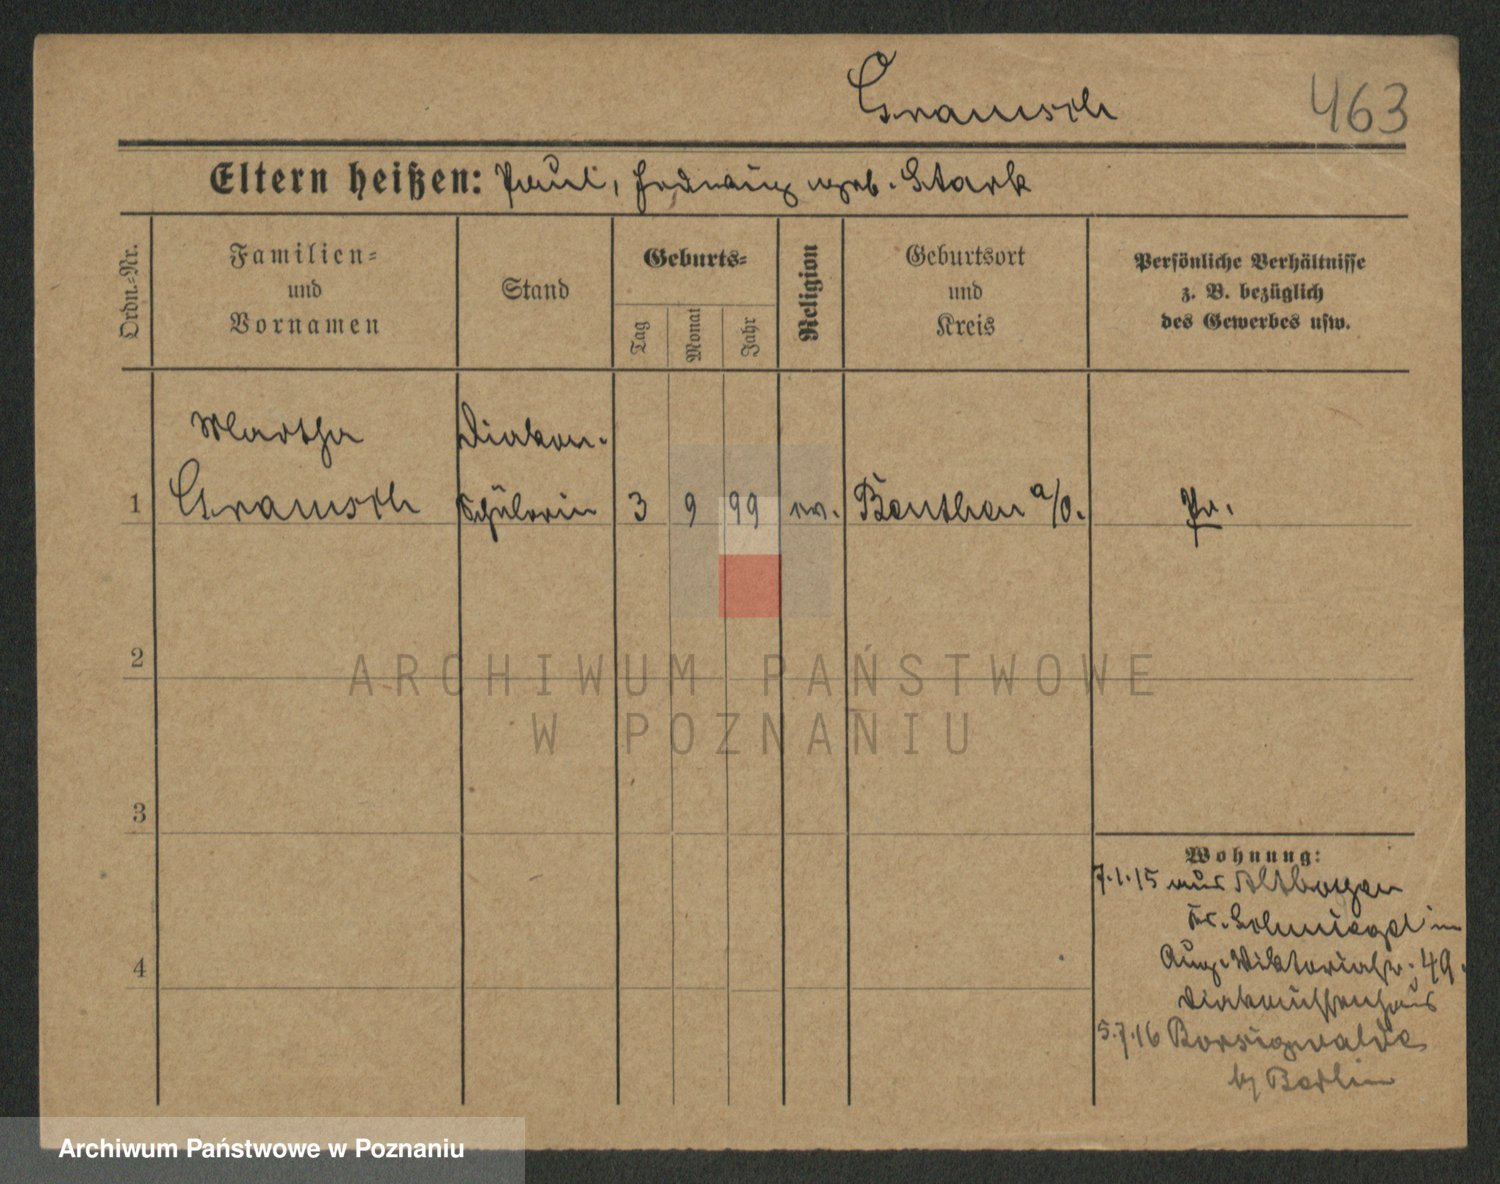 Gramsch
463
Eltern heißen: Paul, Hedwig geb. Stark
Ordn.-Nr.
Familien-
und
Vornamen
Stand
Geburts-
Tag
Monat
Jahr
Religion
Geburtsort
und
Kreis
Persönliche Verhältnisse
z. B. bezüglich
des Gewerbes usw.
Martha Diakon.
1 Gramsch Schülerin 3 9 99 ev. Beuthen a/O. Pr.
2
3
4
Wohnung:
7.1.15 aus Altboyen
Kr. Schmiegel in
Aug. Viktoriastr. 49.
Diakonissenhaus
5.7.16 Borsigwalde
b/ Berlin
ARCHIWUM PAŃSTWOWE
W POZNANIU
Archiwum Państwowe w Poznaniu